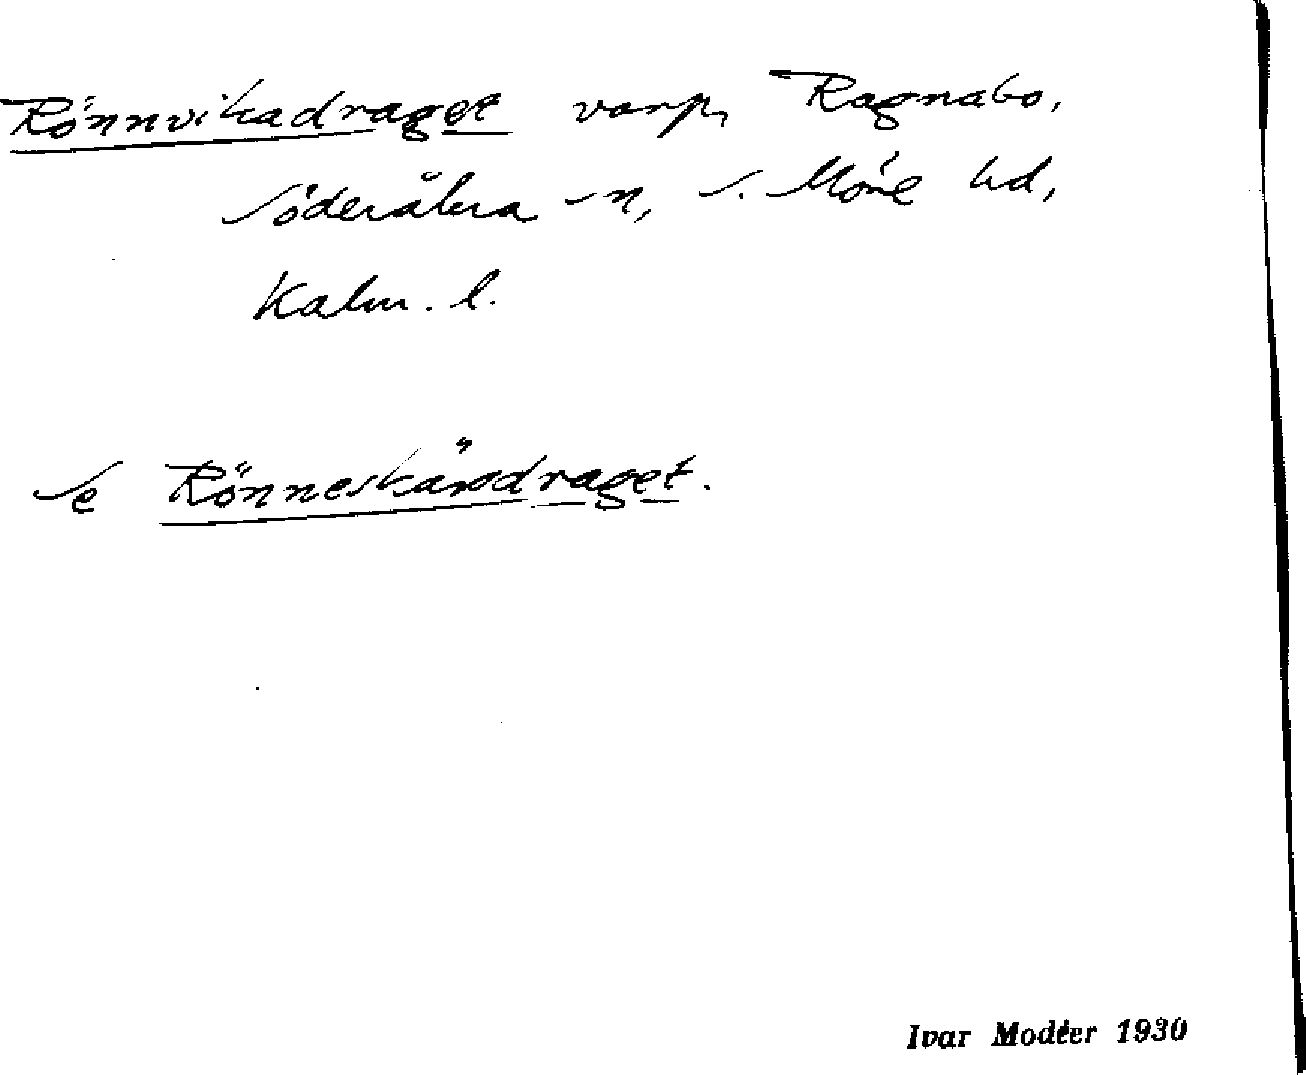 Rönnvikadraget varp, Ragnabo,
Söderåkra sn, S. Möre hd,
Kalm. l.
Se Rönneskärsdraget.
Ivar Modéer 1930